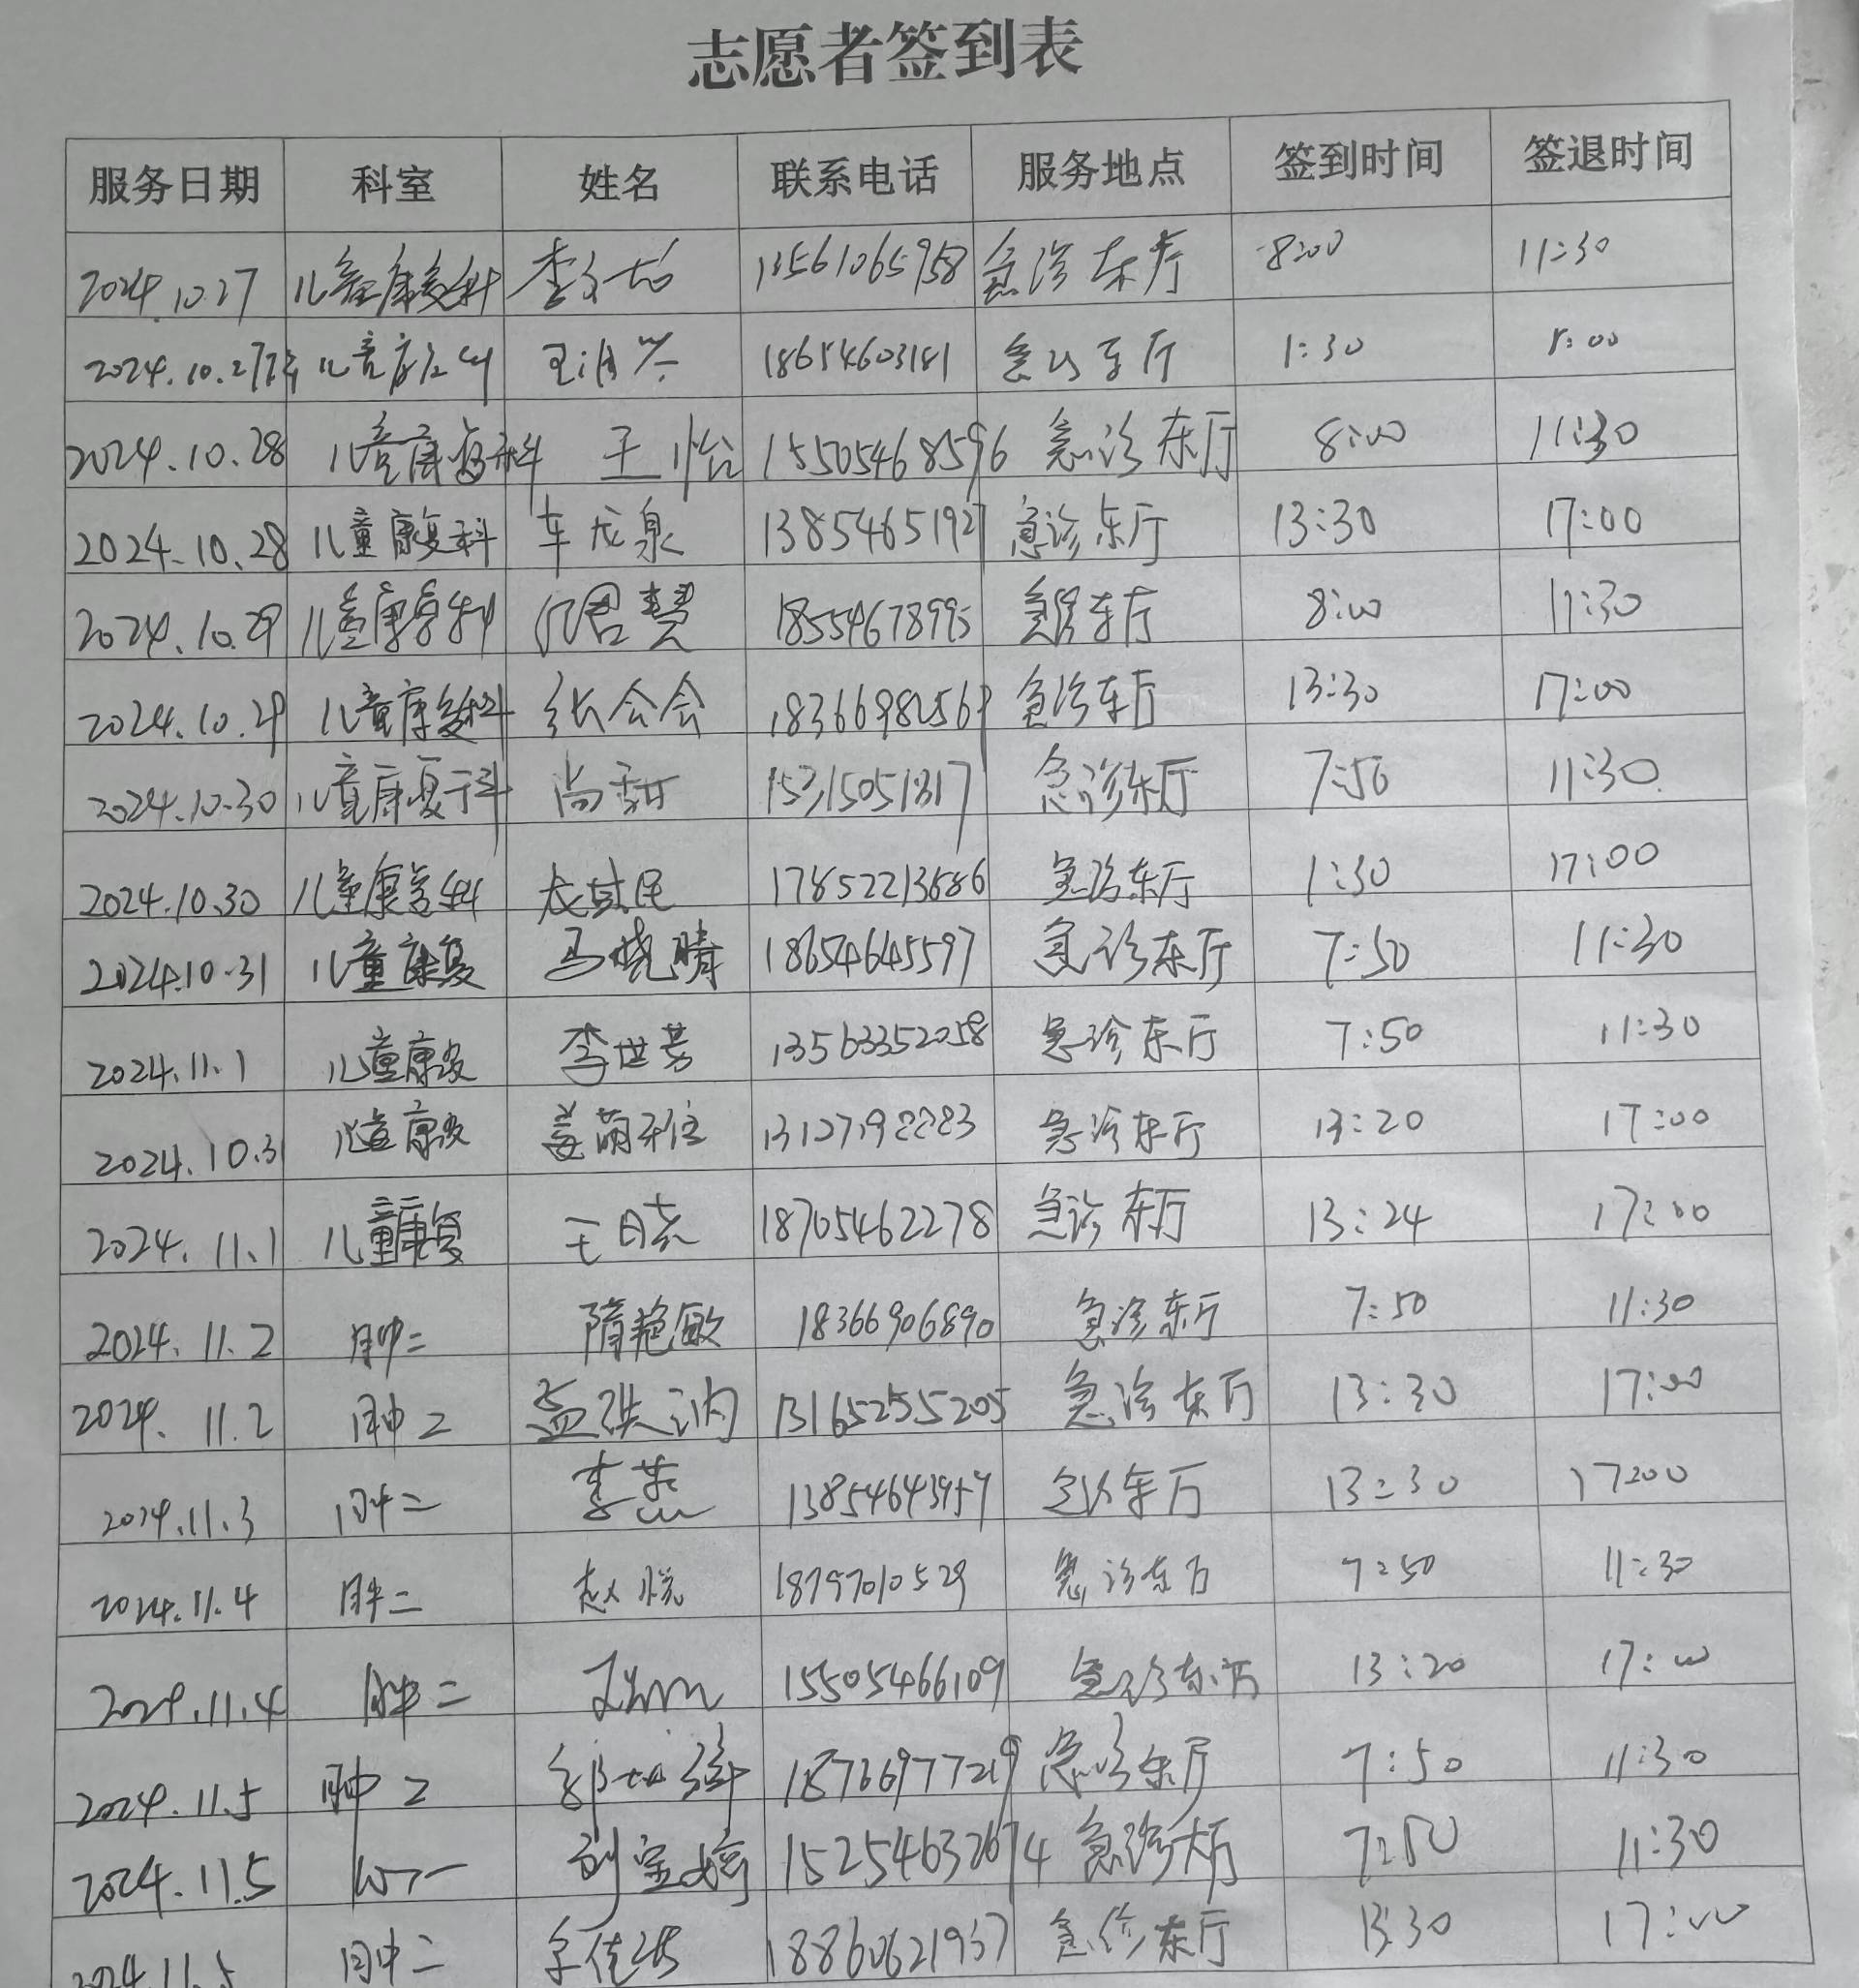 志愿者签到表
服务日期 科室 姓名 联系电话 服务地点 签到时间 签退时间
2024.10.27 儿童康复科 13561065958 急诊东厅 8:00 11:30
2024.10.27 儿童康复科 18654603181 急诊东厅 1:30 5:00
2024.10.28 儿童康复科 王怡 15505468596 急诊东厅 8:00 11:30
2024.10.28 儿童康复科 车龙泉 急诊东厅 13:30 17:00
2024.10.29 儿童康复科 18554678995 急诊东厅 8:00 11:30
2024.10.29 儿童康复科 张会会 急诊东厅 13:30 17:00
2024.10.30 儿童康复科 尚甜 急诊东厅 7:50 11:30
2024.10.30 儿童康复科 急诊东厅 1:30 17:00
2024.10.31 儿童康复 马晓晴 18654645597 急诊东厅 7:50 11:30
2024.11.1 儿童康复 李世芳 13563352058 急诊东厅 7:50 11:30
2024.10.31 儿童康复 急诊东厅 13:20 17:00
2024.11.1 儿童康复 王晓 18705462278 急诊东厅 13:24 17:00
2024.11.2 肿二 隋艳敏 18366906890 急诊东厅 7:50 11:30
2024.11.2 肿二 13165255205 急诊东厅 13:30 17:00
2024.11.3 肿二 李燕 急诊东厅 13:30 17:00
2024.11.4 肿二 赵悦 18797010529 急诊东厅 7:50 11:30
2024.11.4 肿二 15505466109 急诊东厅 13:20 17:00
2024.11.5 肿二 急诊东厅 7:50 11:30
2024.11.5 刘宝婷 急诊大厅 7:50 11:30
2024.11.5 肿二 18860621937 急诊东厅 13:30 17:00